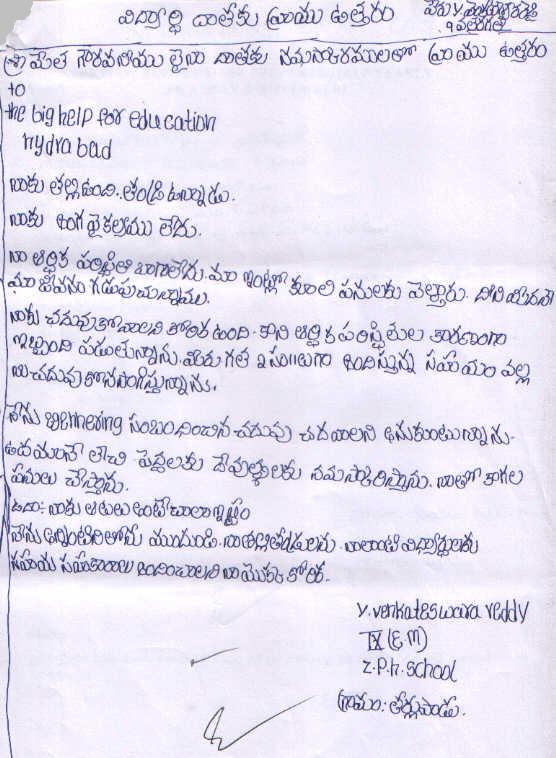 విద్యార్థి దాతకు వ్రాయు ఉత్తరం
పేరు y వెంకటేశ్వరరెడ్డి
9 వతరగతి
శ్రీ మంత గౌరవనీయు లైన దాతకు నమస్కారములతో వ్రాయు ఉత్తరం
to
the big help for education
hydrabad
నాకు తల్లి ఉంది. తండ్రి ఉన్నాడు.
నాకు అంగ వైకల్యము లేదు.
నా ఆర్థిక పరిస్థితి బాగాలేదు. మా ఇంట్లో కూలి పనులకు వెళ్తారు. దాని
మా జీవనం గడుపుచున్నాము.
నాకు చదువుకోవాలని కోరిక ఉంది. కాని ఆర్థిక పరిస్థితుల కారణంగా
ఇబ్బంది పడుతున్నాను. మీరు గత 2 సం॥లుగా అందిస్తున్న సహాయం వల్ల
నా చదువు కొనసాగిస్తున్నాను.
నేను సంబందించిన చదువు చదవాలని అనుకుంటున్నాను.
ఉదయమునే లేచి పెద్దలకు దేవుళ్ళకు నమస్కరిస్తాను. నాతో కాగల
పనులు చేస్తాను.
ఉదా: నాకు ఆటలు అంటే చాలా ఇష్టం
నేను అన్నింటిలోను ముందుండి నా తల్లితండ్రులను. నాలాంటి విద్యార్థులకు
సహాయ సహకారాలు అందించాలని నా యొక్క కోరిక.
y. venkateswara reddy
IX (E.M)
Z.P.H. school
గ్రామం: తేర్లుపాడు.